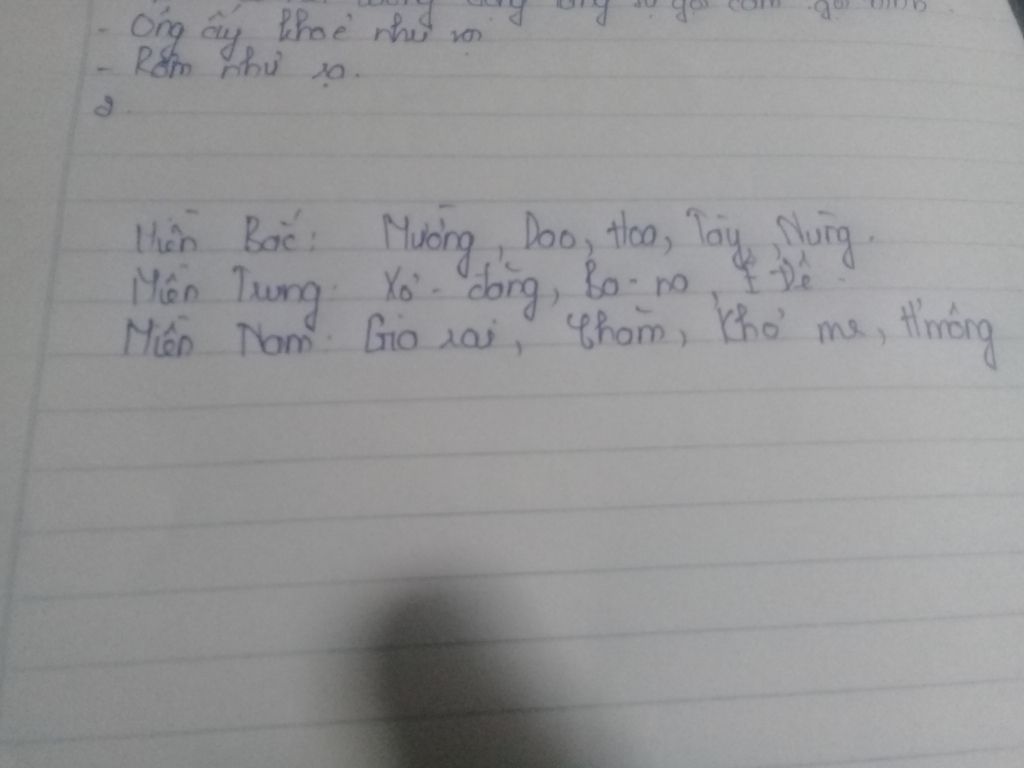 - Ông ấy khoẻ như voi
- Rốm như rạ.
2.
Miền Bắc: Mường, Dao, Hoa, Tày, Nùng.
Miền Trung: Xơ-đăng, Ba-na, Ê-Đê.
Miền Nam: Gia rai, Chăm, Khơ me, H'mông